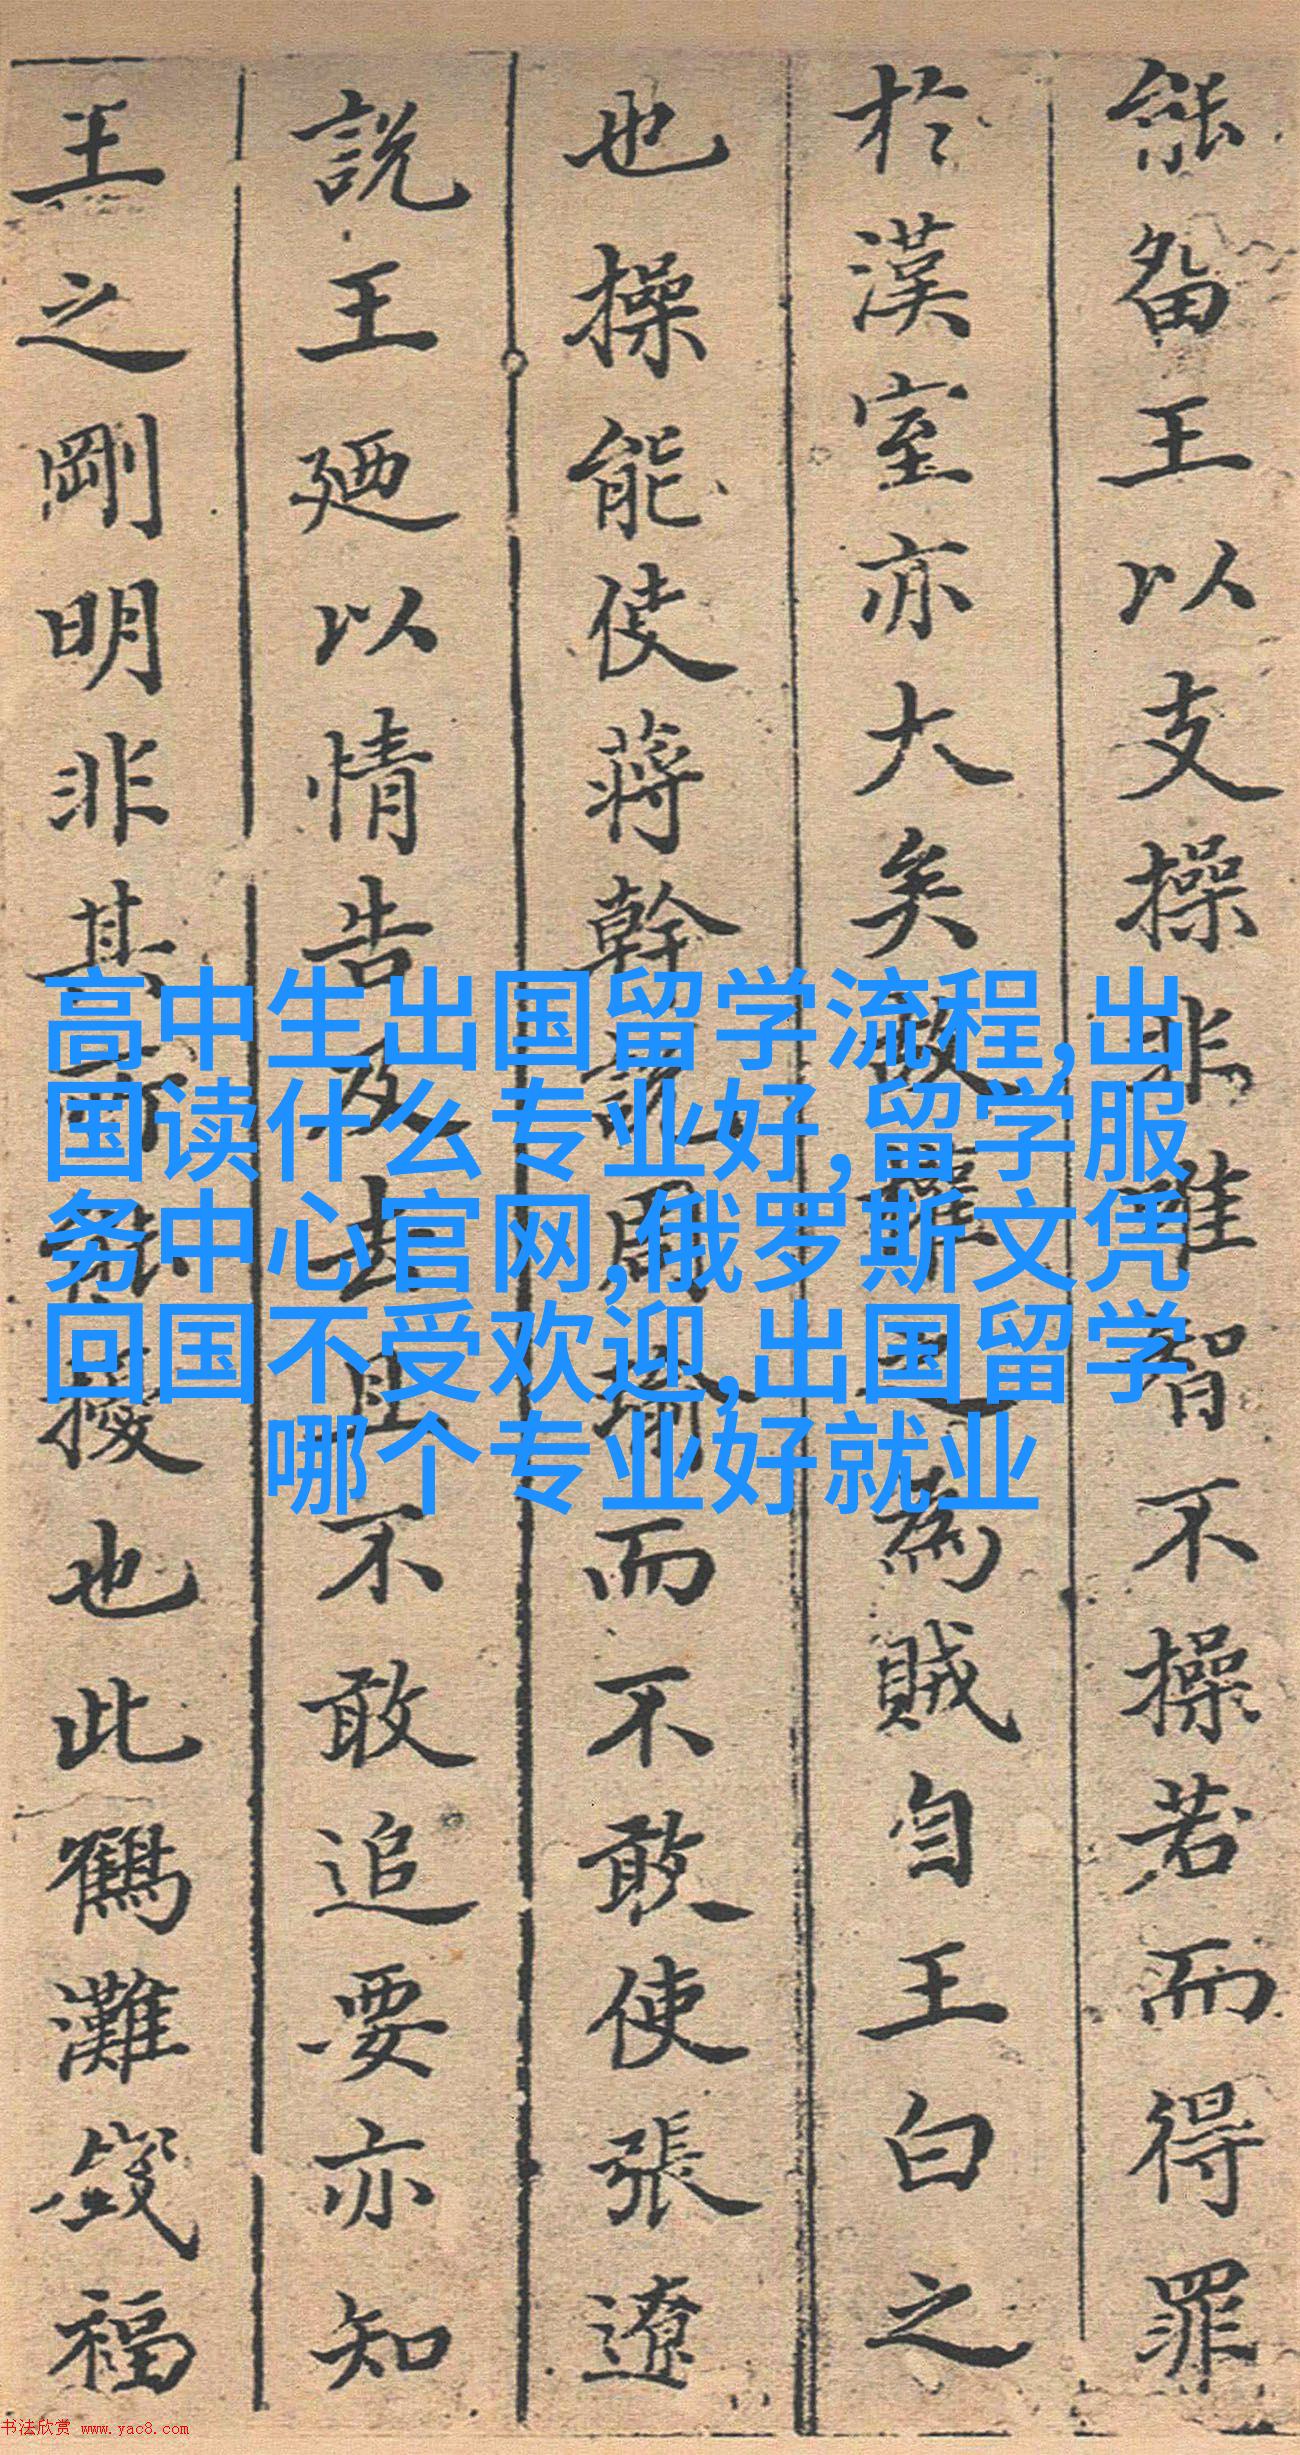 能畱王以支操非雖智不操若而得罪
於漢室亦大矣故權之為賊自王白之
也操能使蔣幹說周瑜而不敢使張遼
說王廼以情告及去且不敢追要亦知
王之剛明非其所授也此鶴灘斂福
高中生出国留学流程,出
国读什么专业好,留学服
务中心官网,俄罗斯文凭
回国不受欢迎,出国留学
哪个专业好就业
书法欣赏 www.yac8.com